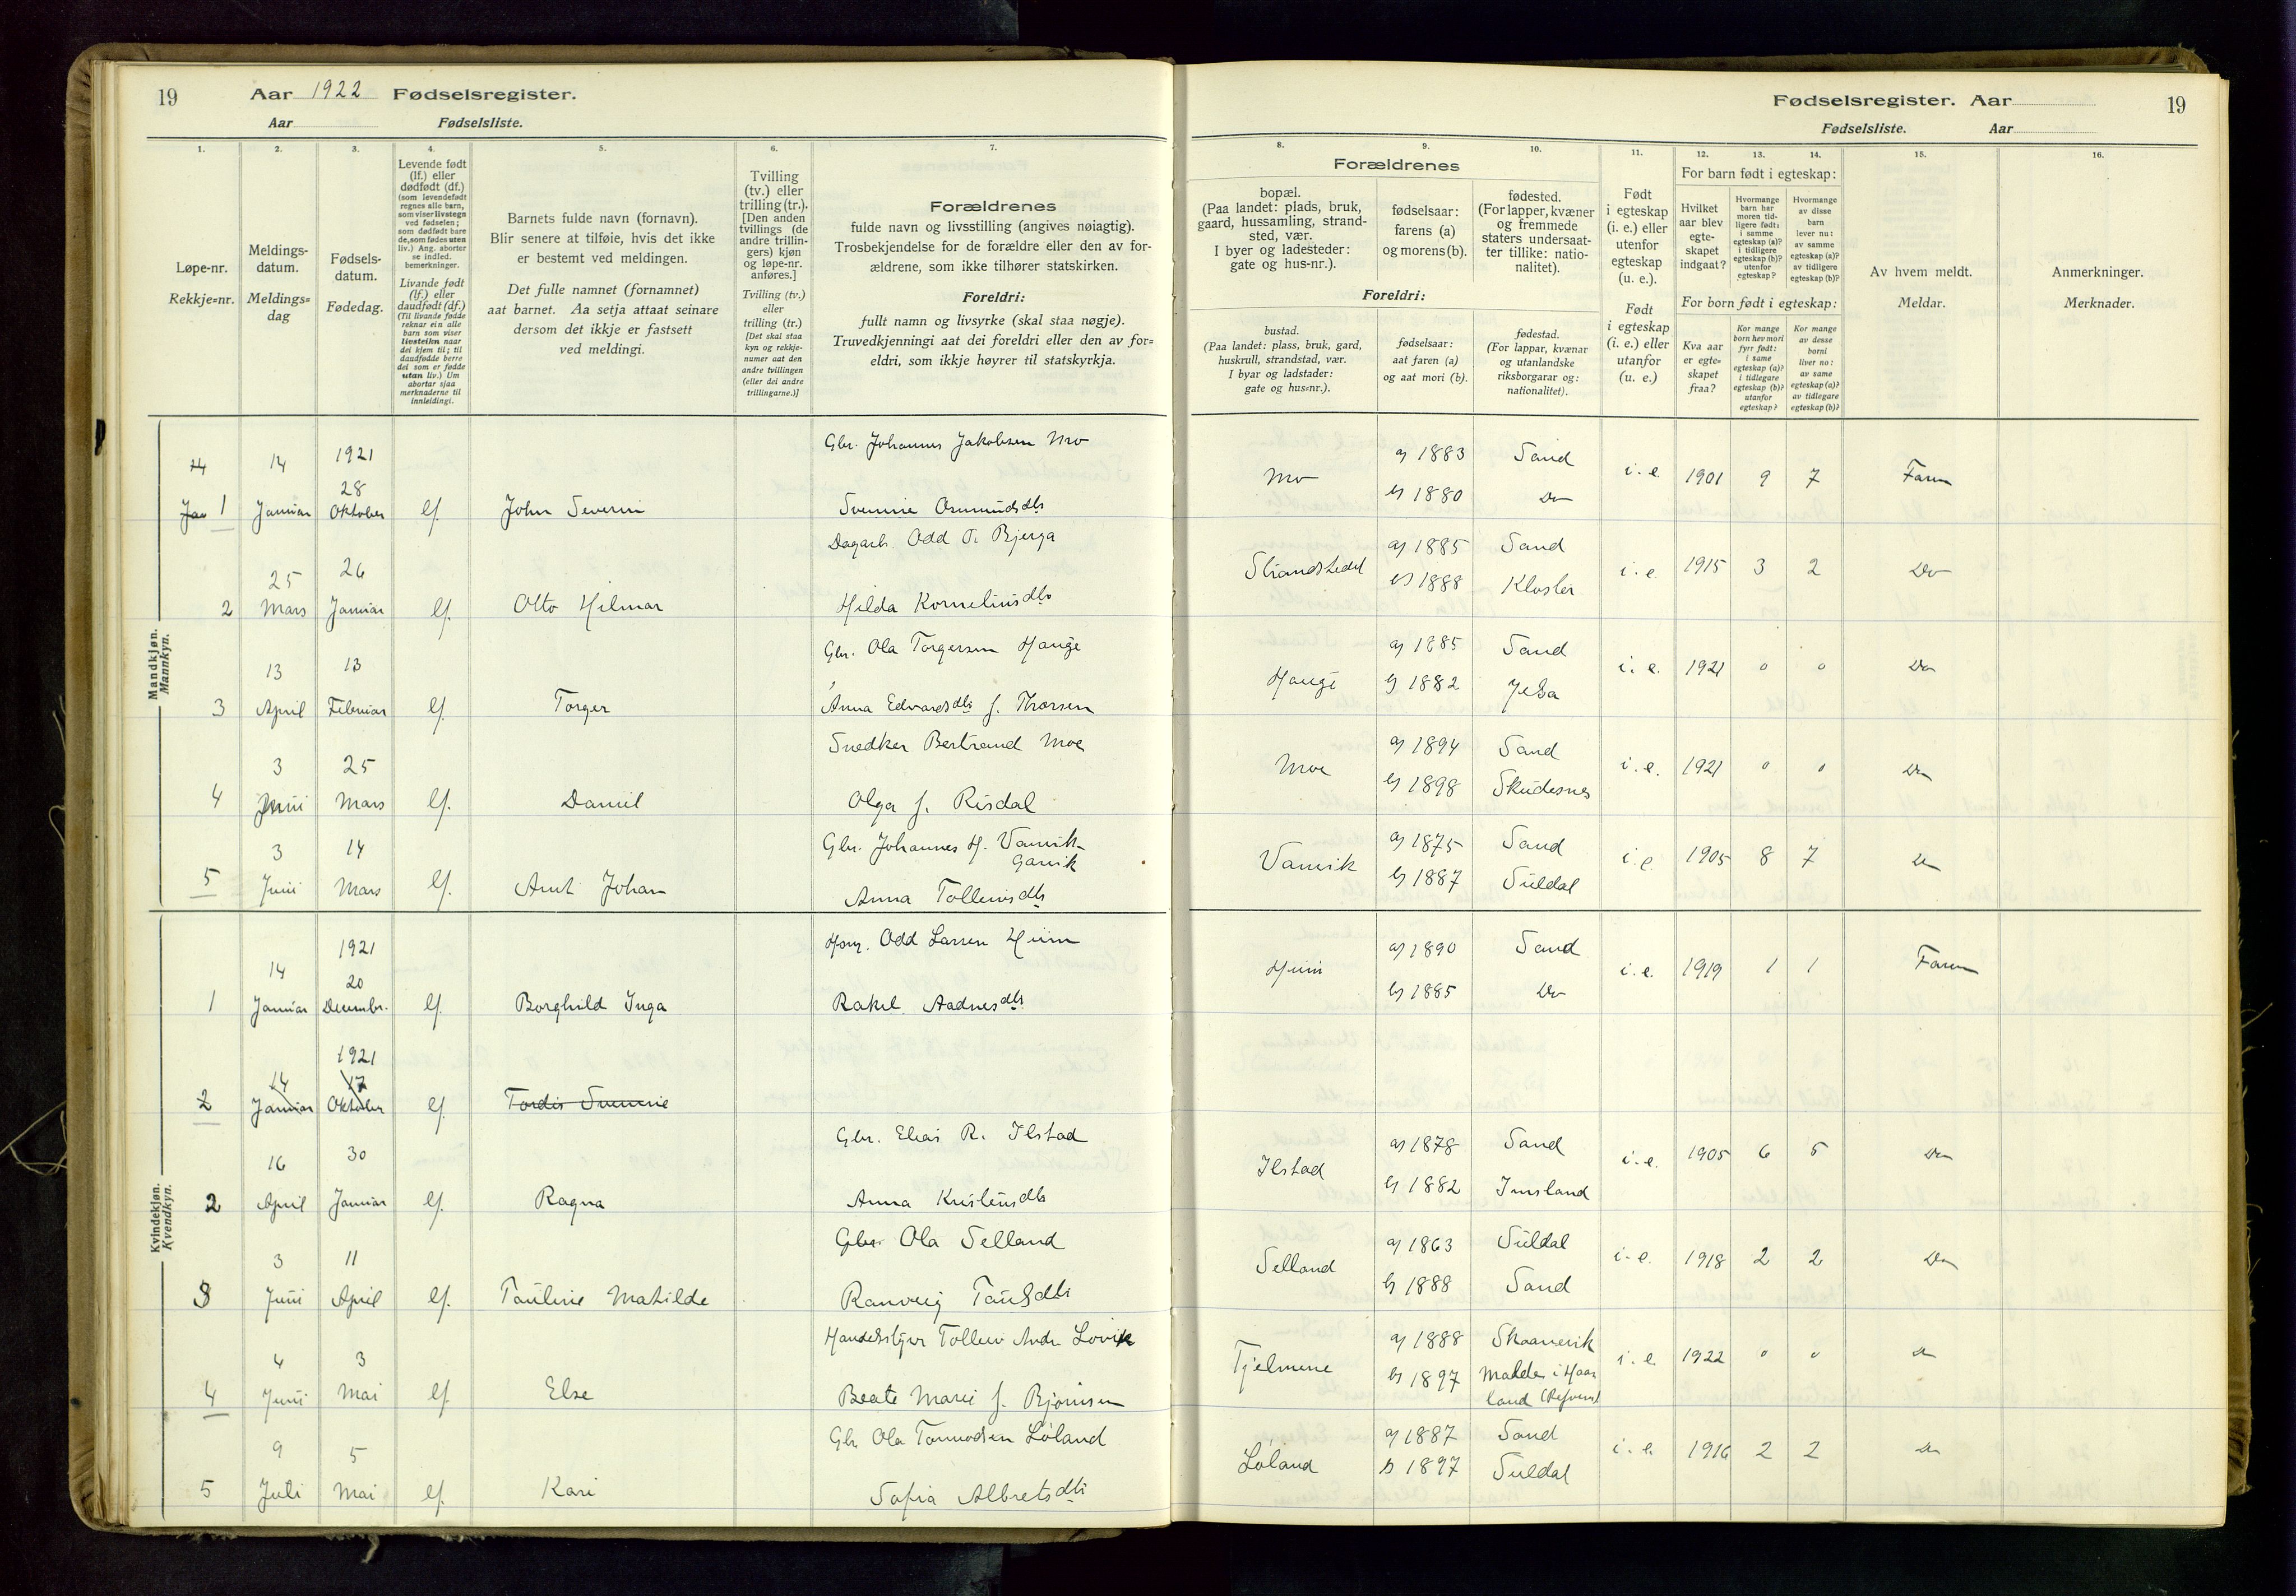 19 Aar 1922 Fødselsregister.
Aar Fødselsliste.
1. 2. 3. 4. 5. 6. 7.
Løpe-nr.
Rekkje=nr.
Meldings-
datum.
Meldings=
dag
Fødsels-
datum.
Fødedag.
Levende født
(lf.) eller
dødfødt (df.)
(som levendefødt
regnes alle barn,
som viser livstegn
ved fødselen;
som dødfødt bare
de, som fødes uten
liv.) Ang. aborter
se indled.
bemerkninger.
Livande født
(lf.) eller
daudfødt (df.)
(Til livande fødde
reknar ein alle
barn som viser
livsteikn naar
dei kjem til; til
daudfødde berre
dei som er fødde
utan liv.) Um
abortar sjaa
merknaderne til
innleidingi.
Barnets fulde navn (fornavn).
Blir senere at tilføie, hvis det ikke
er bestemt ved meldingen.
Det fulle namnet (fornamnet)
aat barnet. Aa setja attaat seinare
dersom det ikkje er fastsett
ved meldingi.
Tvilling
(tv.) eller
trilling (tr.).
[Den anden
tvillings (de
andre trillin-
gers) kjøn
og løpe-nr.
anføres.]
Tvilling (tv.)
eller
trilling (tr.)
[Det skal staa
kyn og rekkje-
numer aat den
andre tvillingen
(eller dei andre
trillingarne.)]
Forældrenes
fulde navn og livsstilling (angives nøiagtig).
Trosbekjendelse for de forældre eller den av for-
ældrene, som ikke tilhører statskirken.
Foreldri:
fullt namn og livsyrke (skal staa nøgje).
Truvedkjenningi aat dei foreldri eller den av for=
eldri, som ikkje høyrer til statskyrkja.
Mandkjøn.
Mannkyn.
1 14 Januar 1921 28 Oktober lf. John Severin Gbr. Johannes Jakobsen Mo
Svennie Osmundsdtr
2 25 Mars 26 Januar lf. Otto Hilmar Dagarb. Odd T. Bjerga
Hilda Korneliusdtr
3 13 April 13 Februar lf. Torger Gbr. Ola Torgersen Hauge
Anna Edvardsdtr f. Thorsen
4 3 Juni 25 Mars lf. Daniel Snedker Bertrand Moe
Olga f. Risdal
5 3 Juni 14 Mars lf. Arnt Johan Gbr. Johannes H. Vanvik-
Garvik
Anna Tollevsdtr
Kvindekjøn.
Kvendkyn.
1 14 Januar 1921 20 Decembr. lf. Borghild Inga Odd Larsen Hiim
Rakel Aadnesdtr
2 14 Januar 1921 17 Oktober lf. Tordis Svennie
2 16 April 30 Januar lf. Ragna Gbr. Elias R. Ilstad
Anna Kristensdtr
3 3 Juni 11 April lf. Pauline Matilde Gbr. Ola Selland
Ranveig Paulsdtr
4 4 Juni 3 Mai lf. Else Handelsstyrer Tollew Andr. Løvik
Beate Marie f. Bjørnsen
5 9 Juli 5 Mai lf. Kari Gbr. Ola Tormodsen Løland
Sofia Albretsdtr
Fødselsregister. Aar 19
Fødselsliste. Aar
8. 9. 10. 11. 12. 13. 14. 15. 16.
Forældrenes
bopæl.
(Paa landet: plads, bruk,
gaard, hussamling, strand-
sted, vær.
I byer og ladesteder:
gate og hus-nr.).
fødselsaar:
farens (a)
og morens (b).
fødested.
(For lapper, kvæner
og fremmede
staters undersaat-
ter tillike: natio-
nalitet).
Foreldri:
bustad.
(Paa landet: plass, bruk, gard,
huskrull, strandstad, vær.
I byar og ladstader:
gate og hus=nr.).
fødselsaar:
aat faren (a)
og aat mori (b).
fødestad.
(For lappar, kvænar
og utanlandske
riksborgarar og:
nationalitet).
Født
i egteskap
(i. e.) eller
utenfor
egteskap
(u. e.).
Født
i egteskap
(i. e.) eller
utanfor
(u. e.)
For barn født i egteskap:
Hvilket
aar blev
egte-
skapet
indgaat?
Hvormange
barn har
moren tid-
ligere født:
i samme
egteskap (a)?
i tidligere
egteskap (b)?
utenfor
egteskap?
Hvormange
av disse
barn
lever nu:
av samme
egteskap (a)?
av tidligere
egteskap (b)?
For born født i egteskap:
Kva aar
er egte=
skapet
fraa?
Kor mange
born hev mori
fyrr født:
i same
egteskap (a)?
i tidlegare
egteskap (b)?
utanfor
egteskap?
Kor mange
av desse
borni
liver no:
av same
egteskap (a)?
av tidlegare
egteskap (b)?
Av hvem meldt.
Meldar.
Anmerkninger.
Merknader.
Mo a) 1883 Sand i. e. 1901 9 7 Faren
b) 1880 Do
Strandstedet a) 1885 Sand i. e. 1915 3 2 Do
b) 1888 Kloster
Hauge a) 1885 Sand i. e. 1921 0 0 Do
b) 1882 Jelsa
Moe a) 1894 Sand i. e. 1921 0 0 Do
b) 1898 Skudesnes
Vanvik a) 1875 Sand i. e. 1905 8 7 Do
b) 1887 Suldal
Hiim a) 1890 Sand i. e. 1919 1 1 Faren
b) 1885 Do
Ilstad a) 1878 Sand i. e. 1905 6 5 Do
b) 1882 Imsland
Selland a) 1863 Suldal i. e. 1918 2 2 Do
b) 1888 Sand
Tjelmene a) 1888 Skaanevik i. e. 1922 0 0 Do
b) 1897 i Haa
land
Løland a) 1887 Sand i. e. 1916 2 2 Do
b) 1897 Suldal